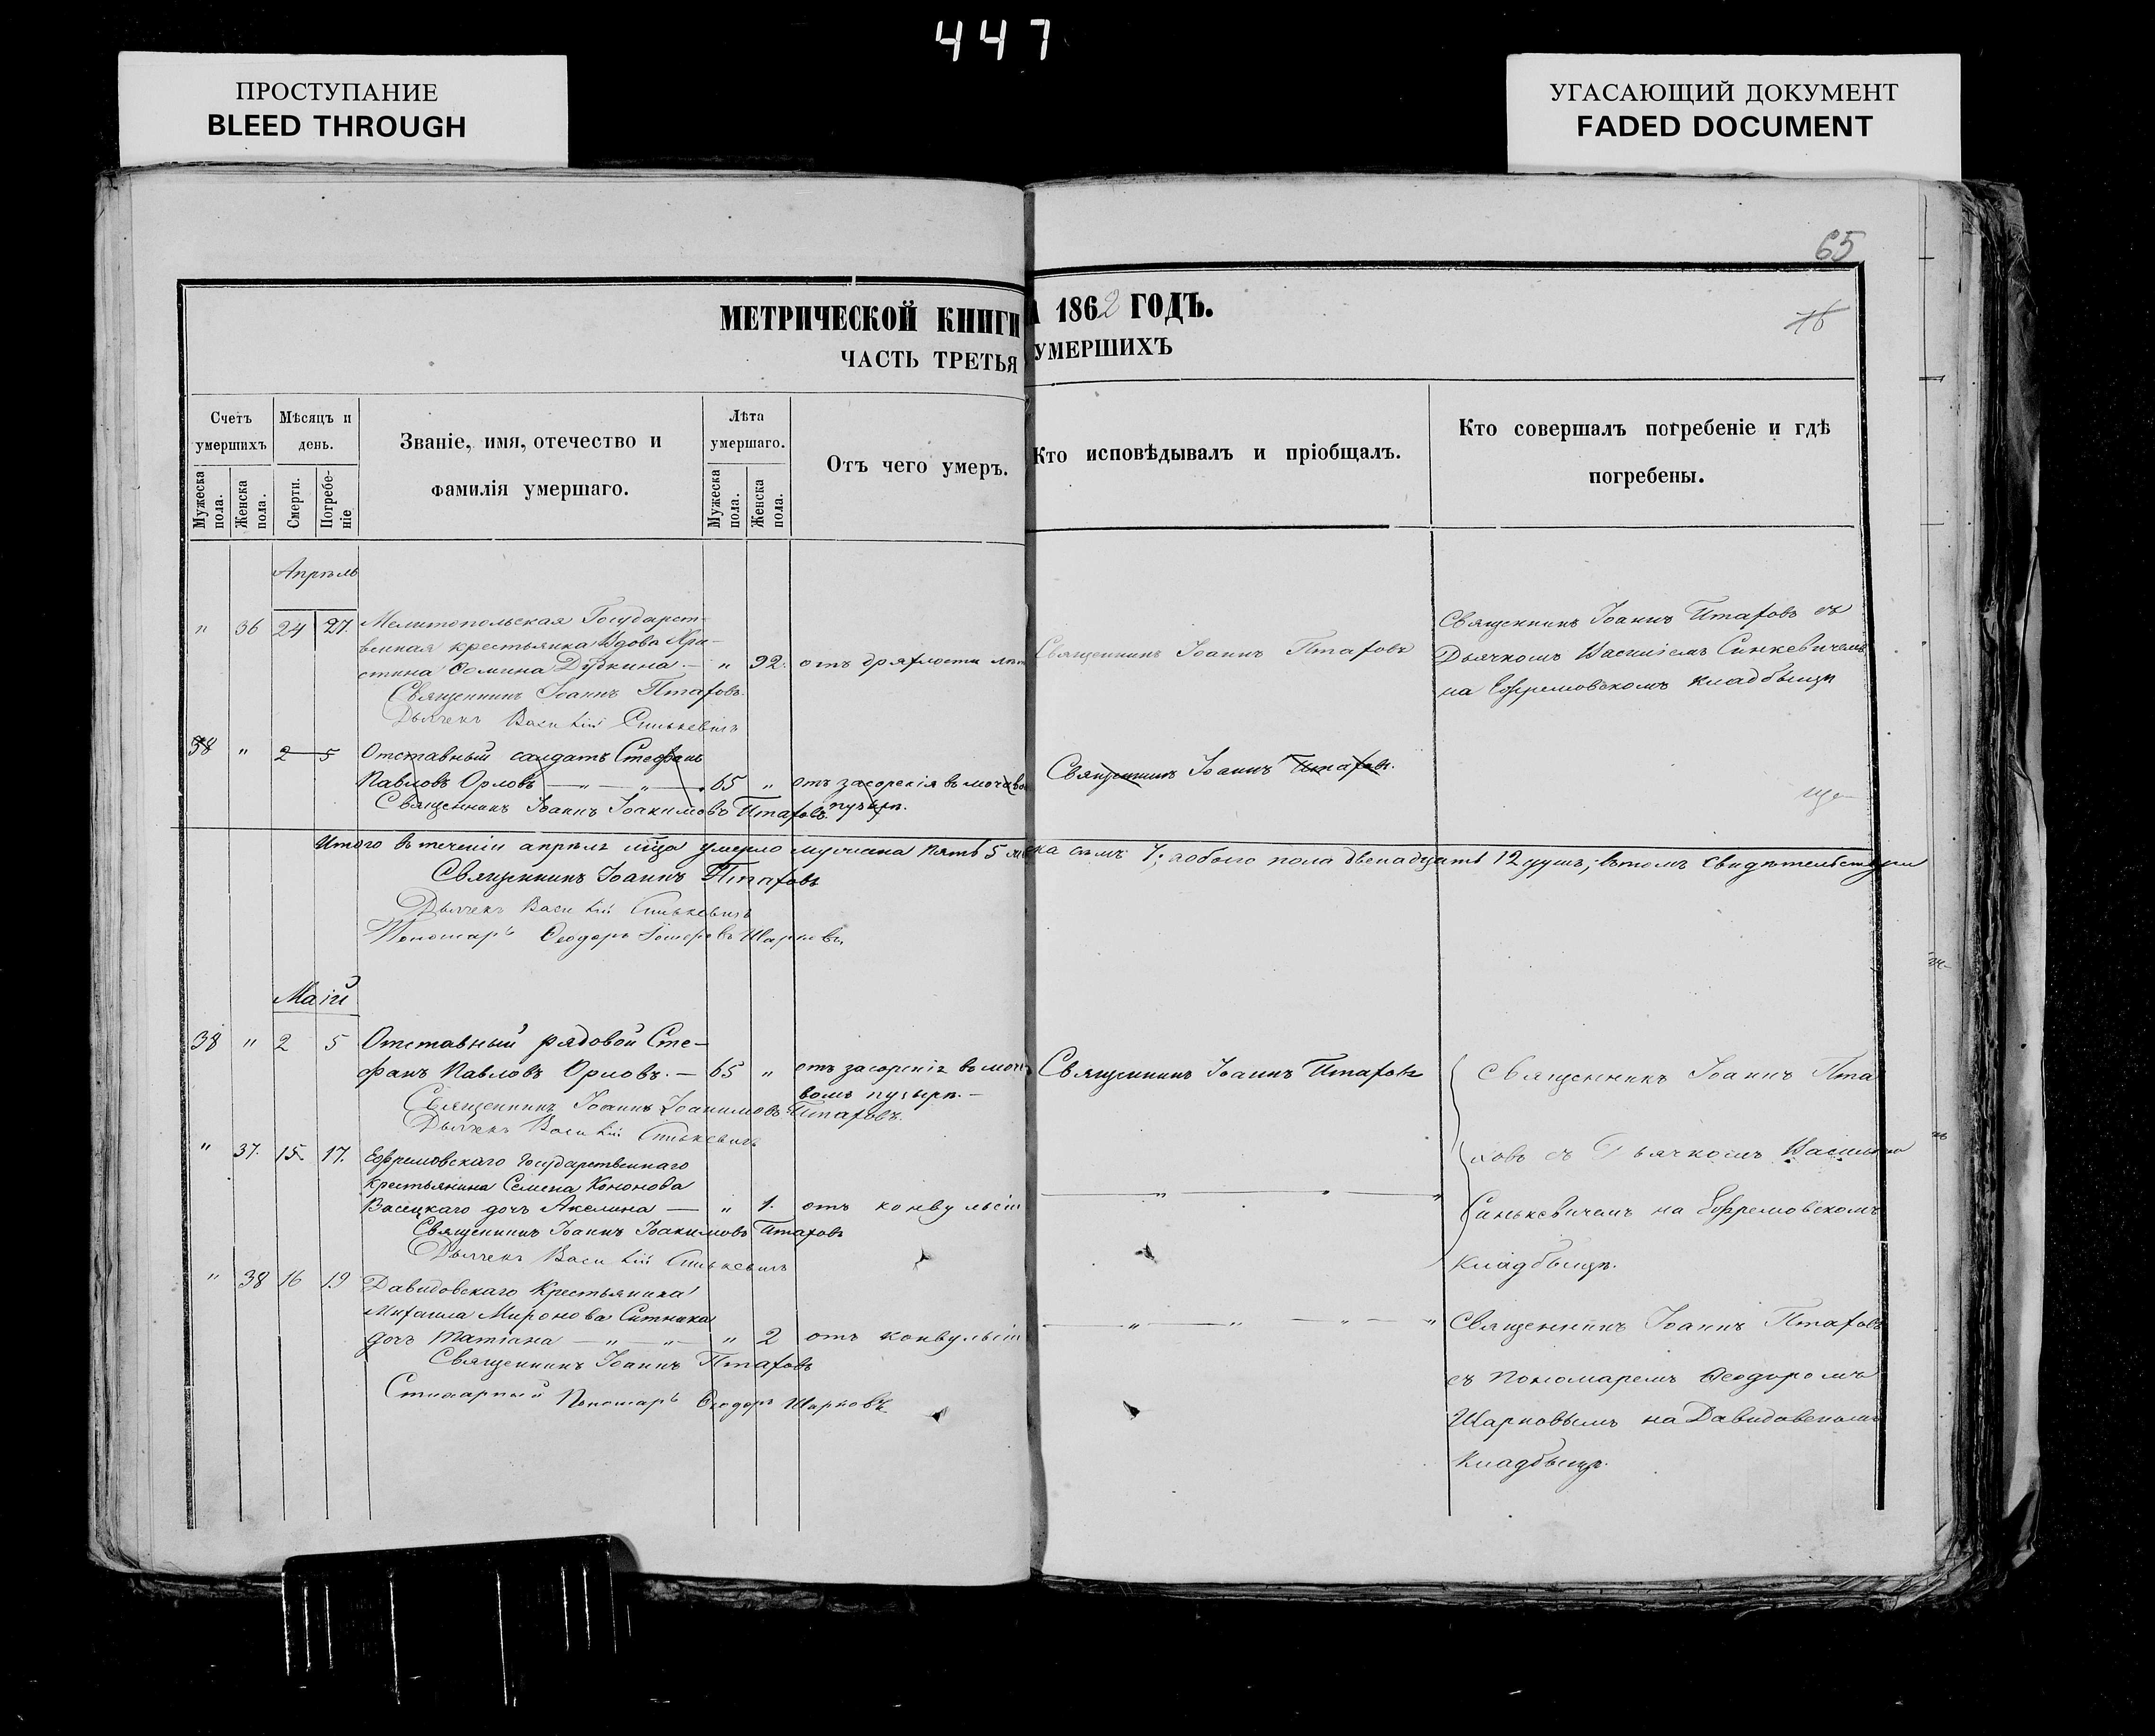 447
ПРОСТУПАНИЕ
BLEED THROUGH
УГАСАЮЩИЙ ДОКУМЕНТ
FADED DOCUMENT
65
МЕТРИЧЕСКОЙ КНИГИ
1862 ГОДЪ.
ЧАСТЬ ТРЕТЬЯ
УМЕРШИХЪ
Счетъ умершихъ
Мужеска пола.
Женска пола.
Мѣсяцъ и день.
Смерти.
Погребеніе
Званіе, имя, отечество и фамилія умершаго.
Лѣта умершаго.
Мужеска пола.
Женска пола.
Отъ чего умеръ.
Кто исповѣдывалъ и пріобщалъ.
Кто совершалъ погребеніе и гдѣ погребены.
Апрѣль
" 36 24 27. Мелитопольская Государст-
венная крестьянка Вдова Хри-
стина Ѳомина — " 92. отъ дряхлости
Священникъ Іоаннъ Птаховъ.
Дьячекъ Василій Синькевичъ
Священникъ Іоаннъ Птаховъ
Священникъ Іоаннъ Птаховъ съ
Дьячкомъ Василіемъ Синкевичемъ
на Ефремовскомъ кладбищѣ
38 " 2 5 Отставный салдатъ Стефанъ
Павловъ Орловъ — " — " — 65 " отъ засоренія въ мочево
пузырѣ.
Священникъ Іоаннъ Іоакимовъ Птаховъ.
Священникъ Іоаннъ Птаховъ.
Итого въ теченіи апрѣля мца умерло мужеска пять 5 женска семь 7; а обоего пола двенадцать 12 душъ; въ томъ свидѣтельствуем
Священникъ Іоаннъ Птаховъ
Дьячекъ Василій Синькевичъ
Пономарь Ѳеодоръ Шарковъ
Маій
38 " 2 5 Отставный рядовой Сте-
фанъ Павловъ Орловъ. — 65 " отъ засоренія въ моче
вомъ пузырѣ. —
Священникъ Іоаннъ Іоакимовъ Птаховъ.
Дьячекъ Василій Синькевичъ
Священникъ Іоаннъ Птаховъ
" 37. 15. 17. Ефремовскаго Государственнаго
крестьянина Семена Кононова
Васецкаго дочь Акелина — " 1. отъ конвульсіи
Священникъ Іоаннъ Іоакимовъ Птаховъ
Дьячекъ Василій Синькевичъ
Священникъ Іоаннъ Пта
ховъ съ Дьячкомъ Василіемъ
Синькевичемъ на Ефремовскомъ
кладбищѣ.
" 38 16 19 Давидовскаго Крестьянина
Михаила Миронова Ситника
дочь Татіана — " — " — " 2 отъ конвульсіи
Священникъ Іоаннъ Птаховъ
Стихарный Пономарь Ѳеодоръ Шарковъ
Священникъ Іоаннъ Птаховъ
съ Пономаремъ Ѳеодоромъ
Шарковымъ на Давидовскомъ
Кладбищѣ.